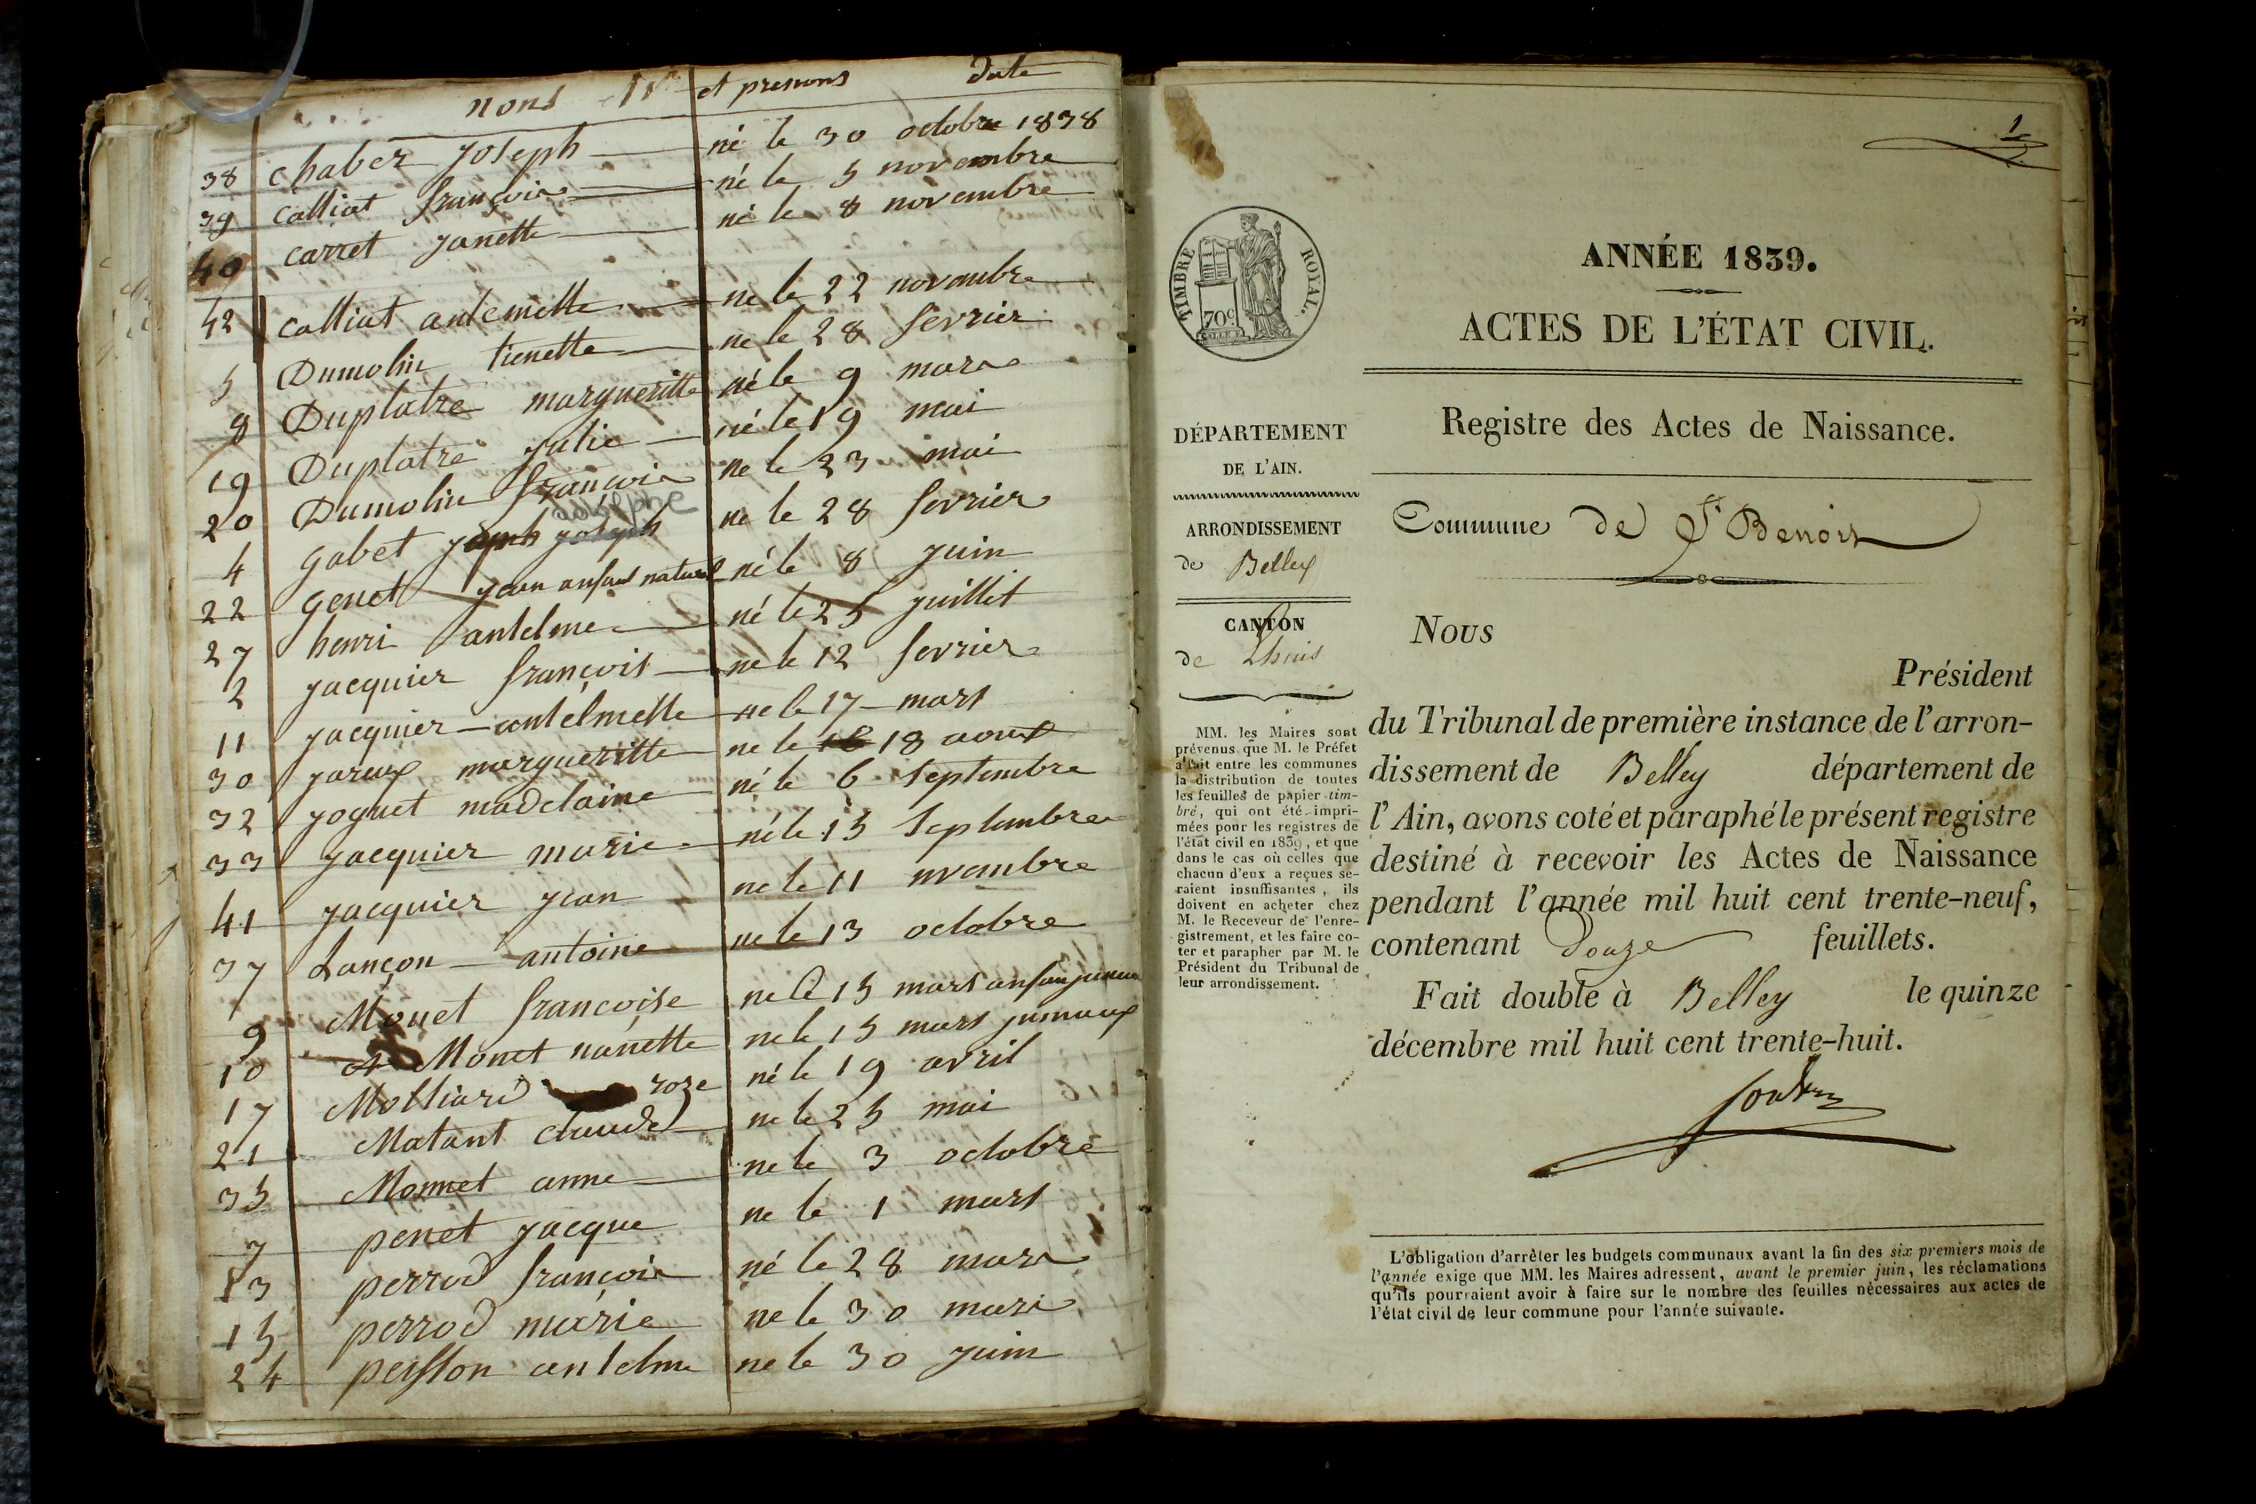 noms et prenoms date
38 chaber joseph né le 30 octobre 1838
39 calliat françois né le 5 novembre
40 carret janette né le 8 novembre
42 calliat antelmette ne le 22 novembre
5 Dumolin tienette ne le 28 fevrier
8 Duplatre margueritte né le 9 mars
19 Duplatre julie né le 19 mai
20 Dumolin françois ne le 23 mai
4 gabet joseph ne le 28 fevrier
22 genet jean anfant naturel né le 8 juin
27 henri antelme né le 25 juillet
2 jacquier françois ne le 12 fevrier
11 jacquier antelmette ne le 17 mars
30 jareux margueritte ne le 18 aout
32 joguet madelaine né le 6 septembre
33 jacquier marie né le 15 septembre
41 jacquier jean ne le 11 nvembre
37 Lançon antoine ne le 13 octobre
9 Monet francoise ne le 15 mars
10 Monet nanette ne le 15 mars jumaux
17 Molliard roze né le 19 avril
21 Matant claude ne le 25 mai
35 Monnet anne ne le 3 octobre
7 penet jacque ne le 1 mars
13 perrod françois né le 28 mars
15 perrod marie ne le 30 mars
24 peysson antelme ne le 30 juin
1
TIMBRE ROYAL.
70c
ANNÉE 1839.
ACTES DE L'ÉTAT CIVIL.
Registre des Actes de Naissance.
DÉPARTEMENT
DE L'AIN.
ARRONDISSEMENT
de Belley
CANTON
de Lhuis
MM. les Maires sont
prévenus que M. le Préfet
a fait entre les communes
la distribution de toutes
les feuilles de papier tim-
bré, qui ont été impri-
mées pour les registres de
l'état civil en 1839, et que
dans le cas où celles que
chacun d'eux a reçues se-
raient insuffisantes, ils
doivent en acheter chez
M. le Receveur de l'enre-
gistrement, et les faire co-
ter et parapher par M. le
Président du Tribunal de
leur arrondissement.
Commune de St Benoit
Nous
Président
du Tribunal de première instance de l'arron-
dissement de Belley département de
l'Ain, avons coté et paraphé le présent registre
destiné à recevoir les Actes de Naissance
pendant l'année mil huit cent trente-neuf,
contenant Douze feuillets.
Fait double à Belley le quinze
décembre mil huit cent trente-huit.
L'obligation d'arrêter les budgets communaux avant la fin des six premiers mois de
l'année exige que MM. les Maires adressent, avant le premier juin, les réclamations
qu'ils pourraient avoir à faire sur le nombre des feuilles nécessaires aux actes de
l'état civil de leur commune pour l'année suivante.